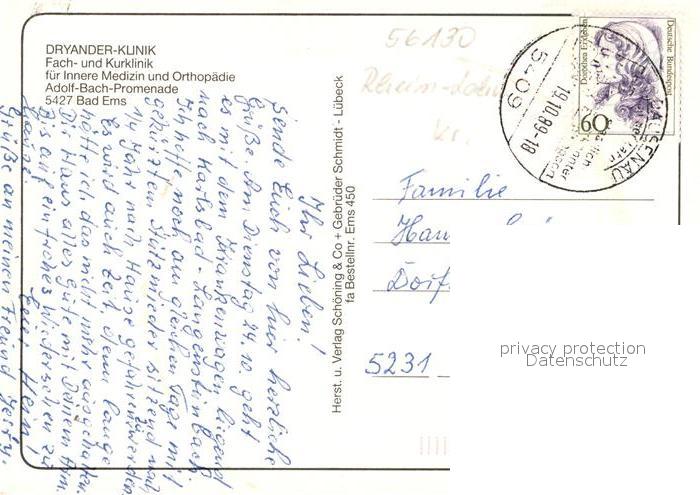 DRYANDER-KLINIK
Fach- und Kurklinik
für Innere Medizin und Orthopädie
Adolf-Bach-Promenade
5427 Bad Ems
Ihr Lieben!
Sende Euch von hier herzliche
Grüße. Am Dienstag 24.10 geht
es mit dem Krankenwagen liegend
nach Karlsbad-Langensteinbach.
Ich hoffe noch am gleichen Tage mit
Stützmieder sitzend nach
1/4 Jahr nach Hause gefahren zu werden.
Es wird auch Zeit, denn lange
hätte ich das nicht mehr ausgehalten.
Dir Hans alles Gute mit Deinem Arm.
Bis auf ein frohes Wiedersehen zu
Hause. Euer Heini
Grüße an meinen Freund
Herst. u. Verlag Schöning & Co + Gebrüder Schmidt - Lübeck
fa Bestellnr. Ems 450
56130
Rhein-Lahn
Kr.
5409
19.10.89-18
Dorothea Erxleben
Deutsche Bundespost
60
Familie
Han
Dorf
5231
privacy protection
Datenschutz